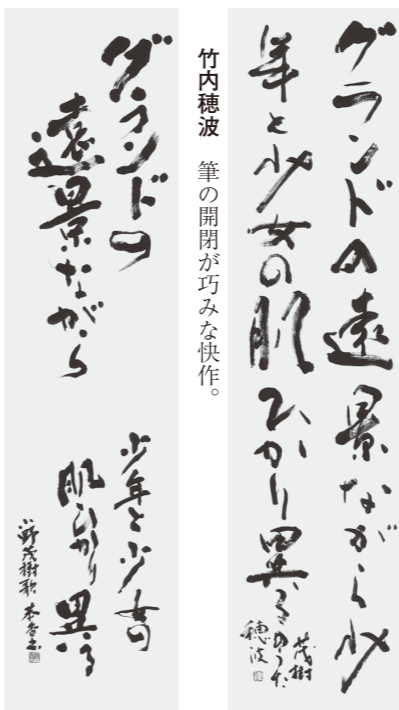 グランドの遠景ながら少
年と少女の肌ひかり異る
茂樹のうた
穂波
竹内穂波　筆の開閉が巧みな快作。
グランドの
遠景ながら
少年と少女の
肌ひかり異る
小野茂樹歌